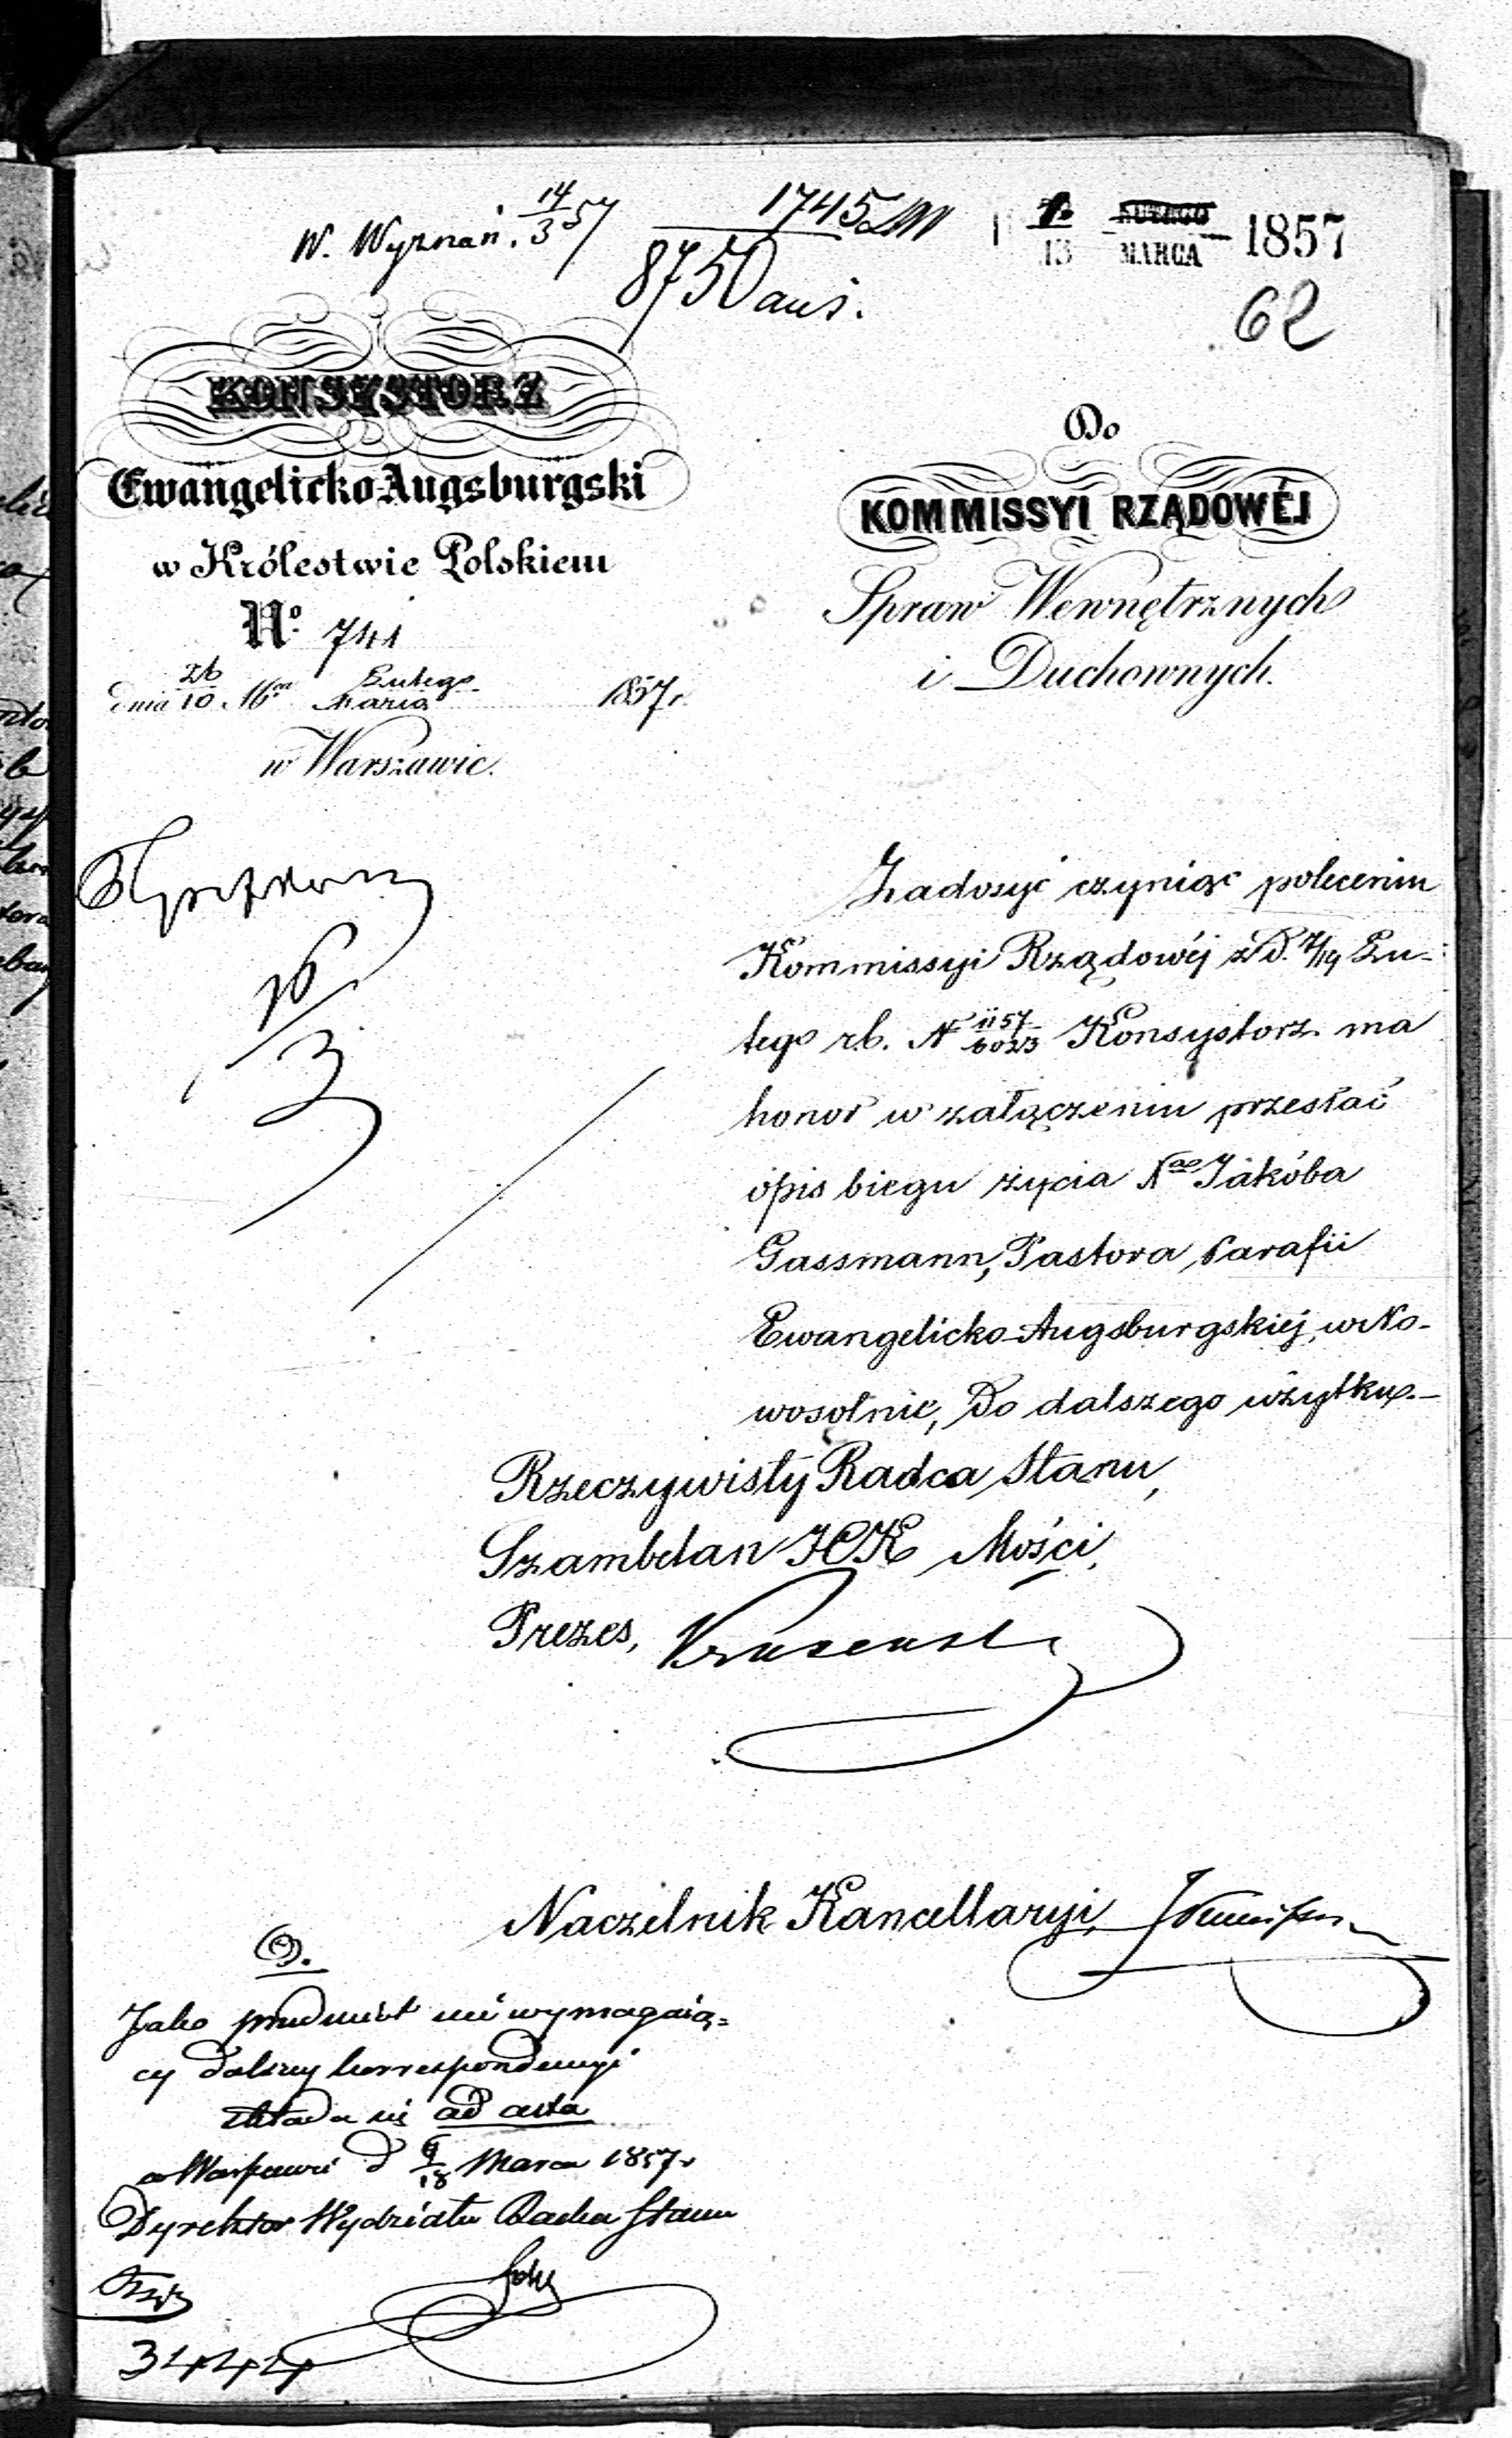 W. Wyznań. 14/3 57
1745
8750 aus.
1 13 LUTEGO MARCA 1857
62
KONSYSTORZ
Ewangelicko-Augsburgski
w Królestwie Polskiem
No. 741
dnia 26/10 Mca Lutego Marca 1857 r.
w Warszawie.
Do
KOMMISSYI RZĄDOWÉJ
Spraw Wewnętrznych
i Duchownych.
16/3
Zadosyć czyniąc poleceniu
Kommissyi Rządowéj z D. 7/19 Lu-
tego r.b. N 1157/6023 Konsystorz ma
honor w załączeniu przesłać
opis biegu życia Jakóba
Gassmann, Pastora Parafii
Ewangelicko-Augsburgskiej w No-
wosolnie, do dalszego użytku.—
Rzeczywisty Radca Stanu,
Szambelan JCK Mości,
Prezes,
Naczelnik Kancellaryi,
D.
Jako przedmiot nie wymagaią=
cy dalszey korrespondencyi
składa się ad acta
w Warszawie d 6/18 Marca 1857 r
Dyrektor Wydziału Radca Stanu